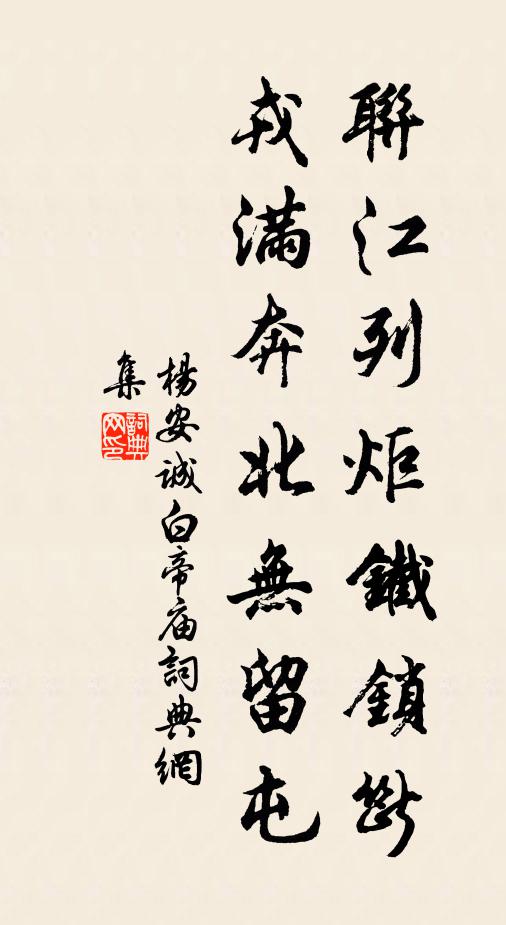 聯江列炬鐵鎖斷
戎滿奔北無留屯
楊安誠白帝廟詞典網
集
詞典網印